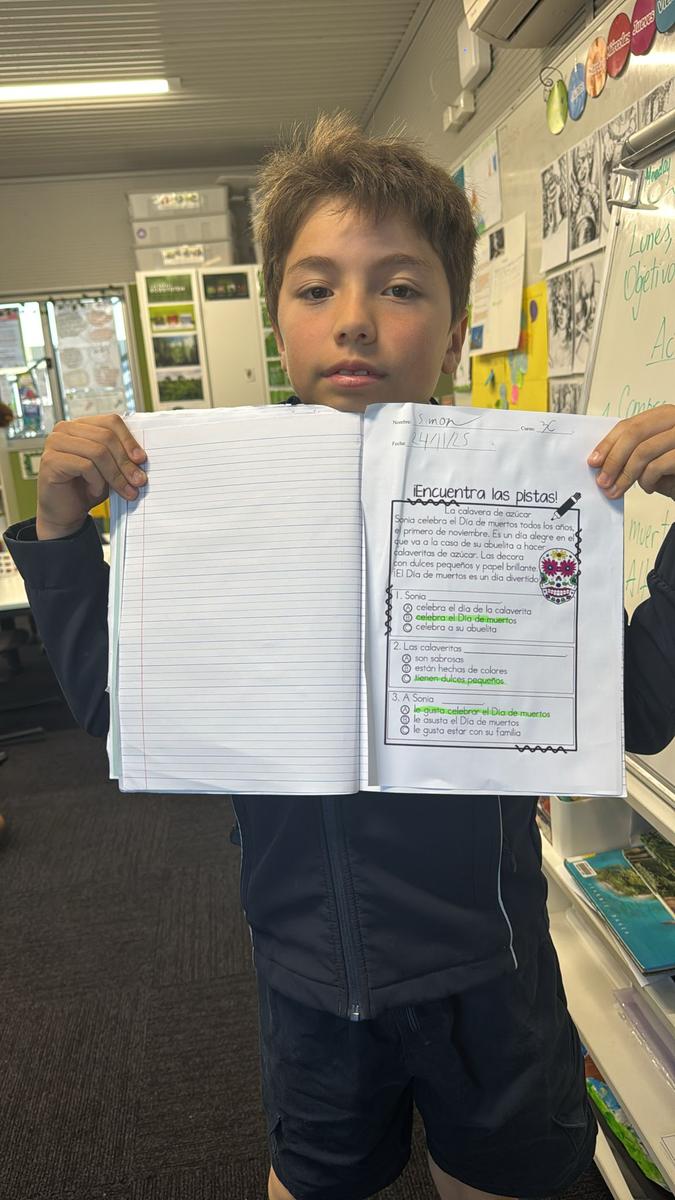 Miércoles
Jueves
Monday
Lunes,
Objetivo
Nombre: Simon Curso: 3C
Fecha: 24/11/25
¡Encuentra las pistas!
La calavera de azúcar
Sonia celebra el Día de muertos todos los años,
el primero de noviembre. Es un día alegre en el
que va a la casa de su abuelita a hacer
calaveritas de azúcar. Las decora
con dulces pequeños y papel brillante.
¡El Día de muertos es un día divertido
1. Sonia
A celebra el día de la calaverita
B celebra el Día de muertos
C celebra a su abuelita
2. Las calaveritas
A son sabrosas
B están hechas de colores
C tienen dulces pequeños
3. A Sonia
A le gusta celebrar el Día de muertos
B le asusta el Día de muertos
C le gusta estar con su familia